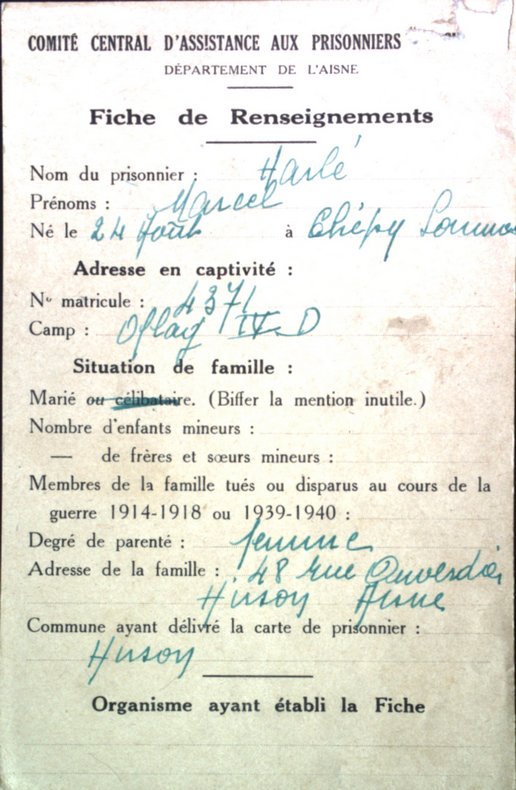 COMITÉ CENTRAL D'ASSISTANCE AUX PRISONNIERS
DÉPARTEMENT DE L'AISNE
Fiche de Renseignements
Nom du prisonnier : Harlé
Prénoms : Marcel
Né le 24 Août à Chépy Somme
Adresse en captivité :
No matricule : 4371
Camp : Oflag IV D
Situation de famille :
Marié ou célibataire. (Biffer la mention inutile.)
Nombre d'enfants mineurs :
— de frères et sœurs mineurs :
Membres de la famille tués ou disparus au cours de la
guerre 1914-1918 ou 1939-1940 :
Degré de parenté : femme
Adresse de la famille : 48 rue
Hirson Aisne
Commune ayant délivré la carte de prisonnier :
Hirson
Organisme ayant établi la Fiche